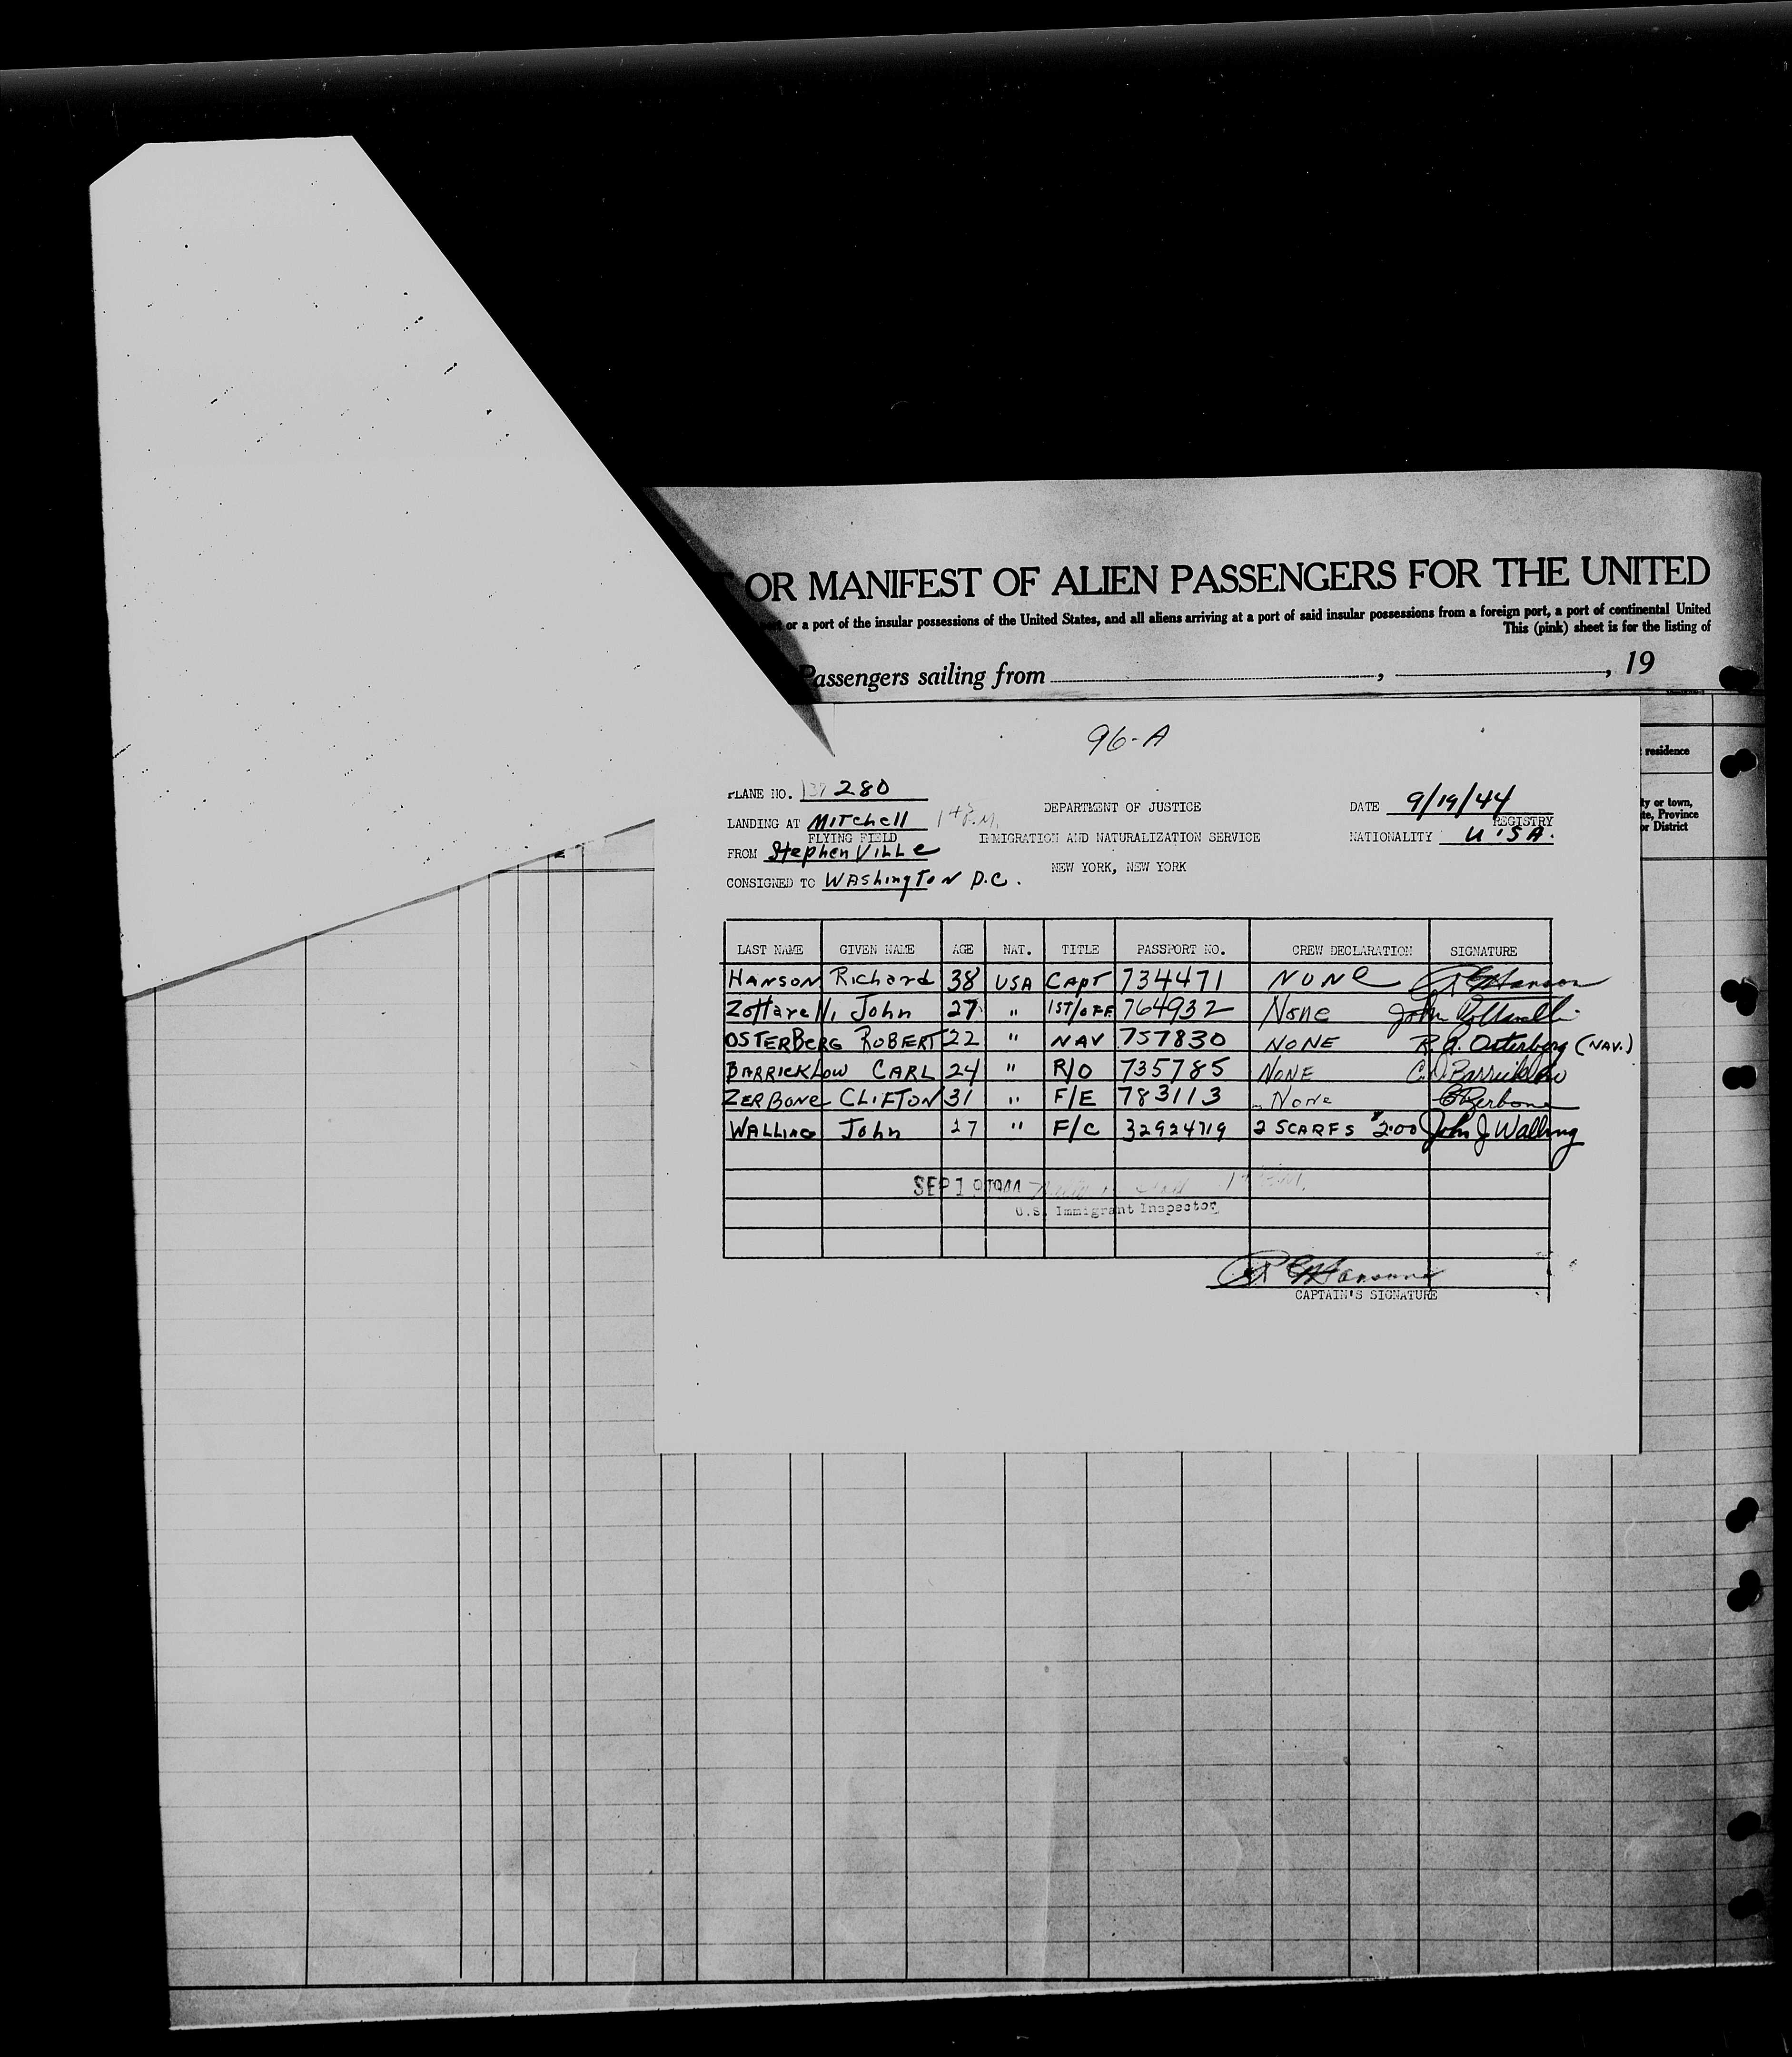 OR MANIFEST OF ALIEN PASSENGERS FOR THE UNITED
or a port of the insular possessions of the United States, and all aliens arriving at a port of said insular possessions from a foreign port, a port of continental United
This (pink) sheet is for the listing of
Passengers sailing from , , 19
residence
ty or town,
te, Province
or District
96-A
PLANE NO. 280
DEPARTMENT OF JUSTICE
DATE 9/19/44
LANDING AT Mitchell
FLYING FIELD
IMMIGRATION AND NATURALIZATION SERVICE
REGISTRY
NATIONALITY U.S.A.
FROM StephenVille
NEW YORK, NEW YORK
CONSIGNED TO WAShingToN D.C.
LAST NAME GIVEN NAME AGE NAT. TITLE PASSPORT NO. CREW DECLARATION SIGNATURE
HANSON Richard 38 USA CAPT 734471 NONE R E Hanson
Zottarelli, John 27 " 1ST/OFF 764932 None John Zottarelli
OSTERBERG ROBERT 22 " NAV 757830 NONE R. A. Osterberg (NAV.)
BARRICKLOW CARL 24 " R/O 735785 NONE C. D. Barricklow
ZERBONE CLIFTON 31 " F/E 783113 None C Zerbone
WALLING John 27 " F/C 32924719 2 SCARFS $2.00 John J Walling
SEP 19 1944
U.S. Immigrant Inspector
R E Hanson
CAPTAIN'S SIGNATURE